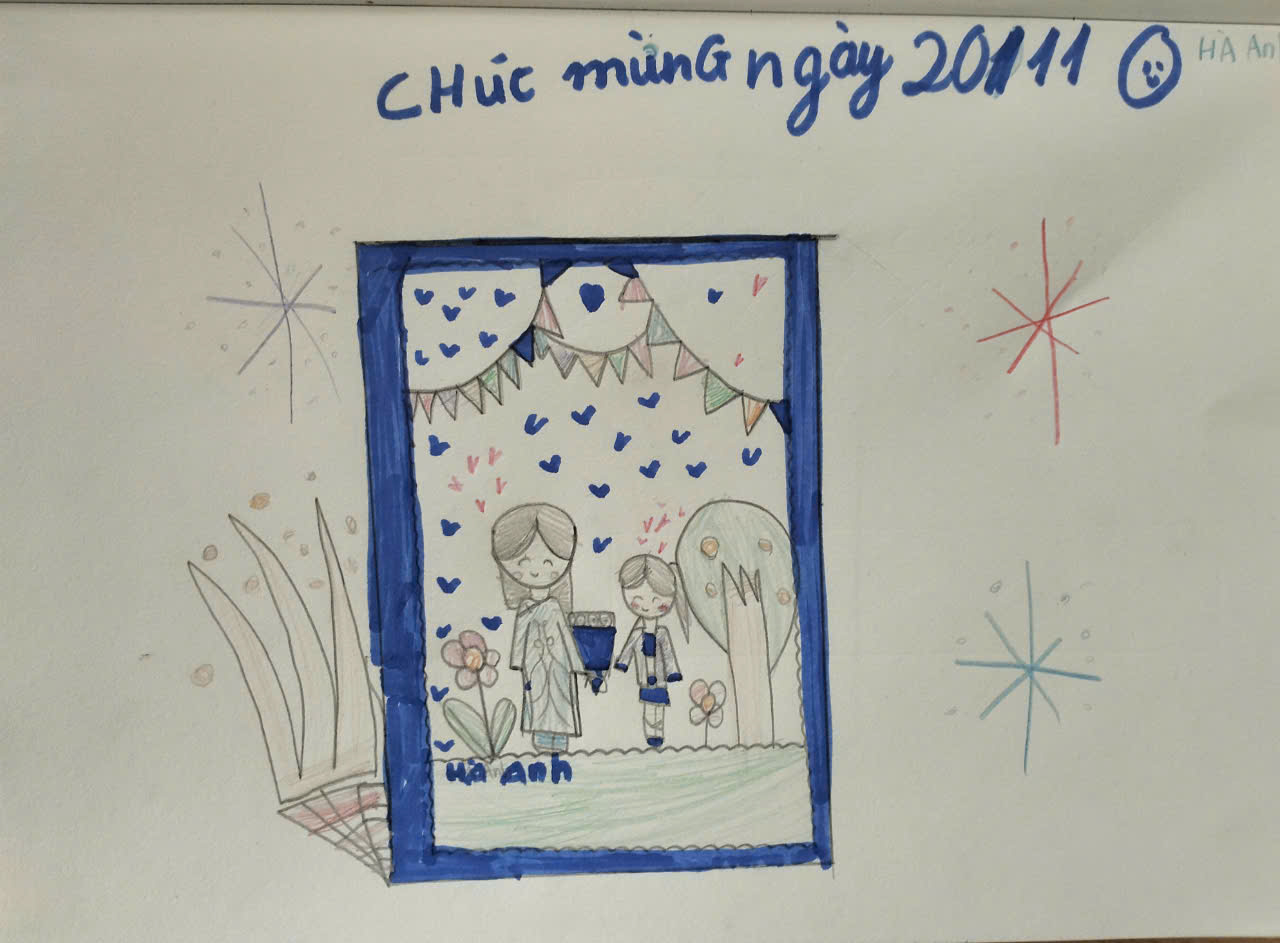 CHúc mừnG ngày 20/11
HÀ An
Hà Anh